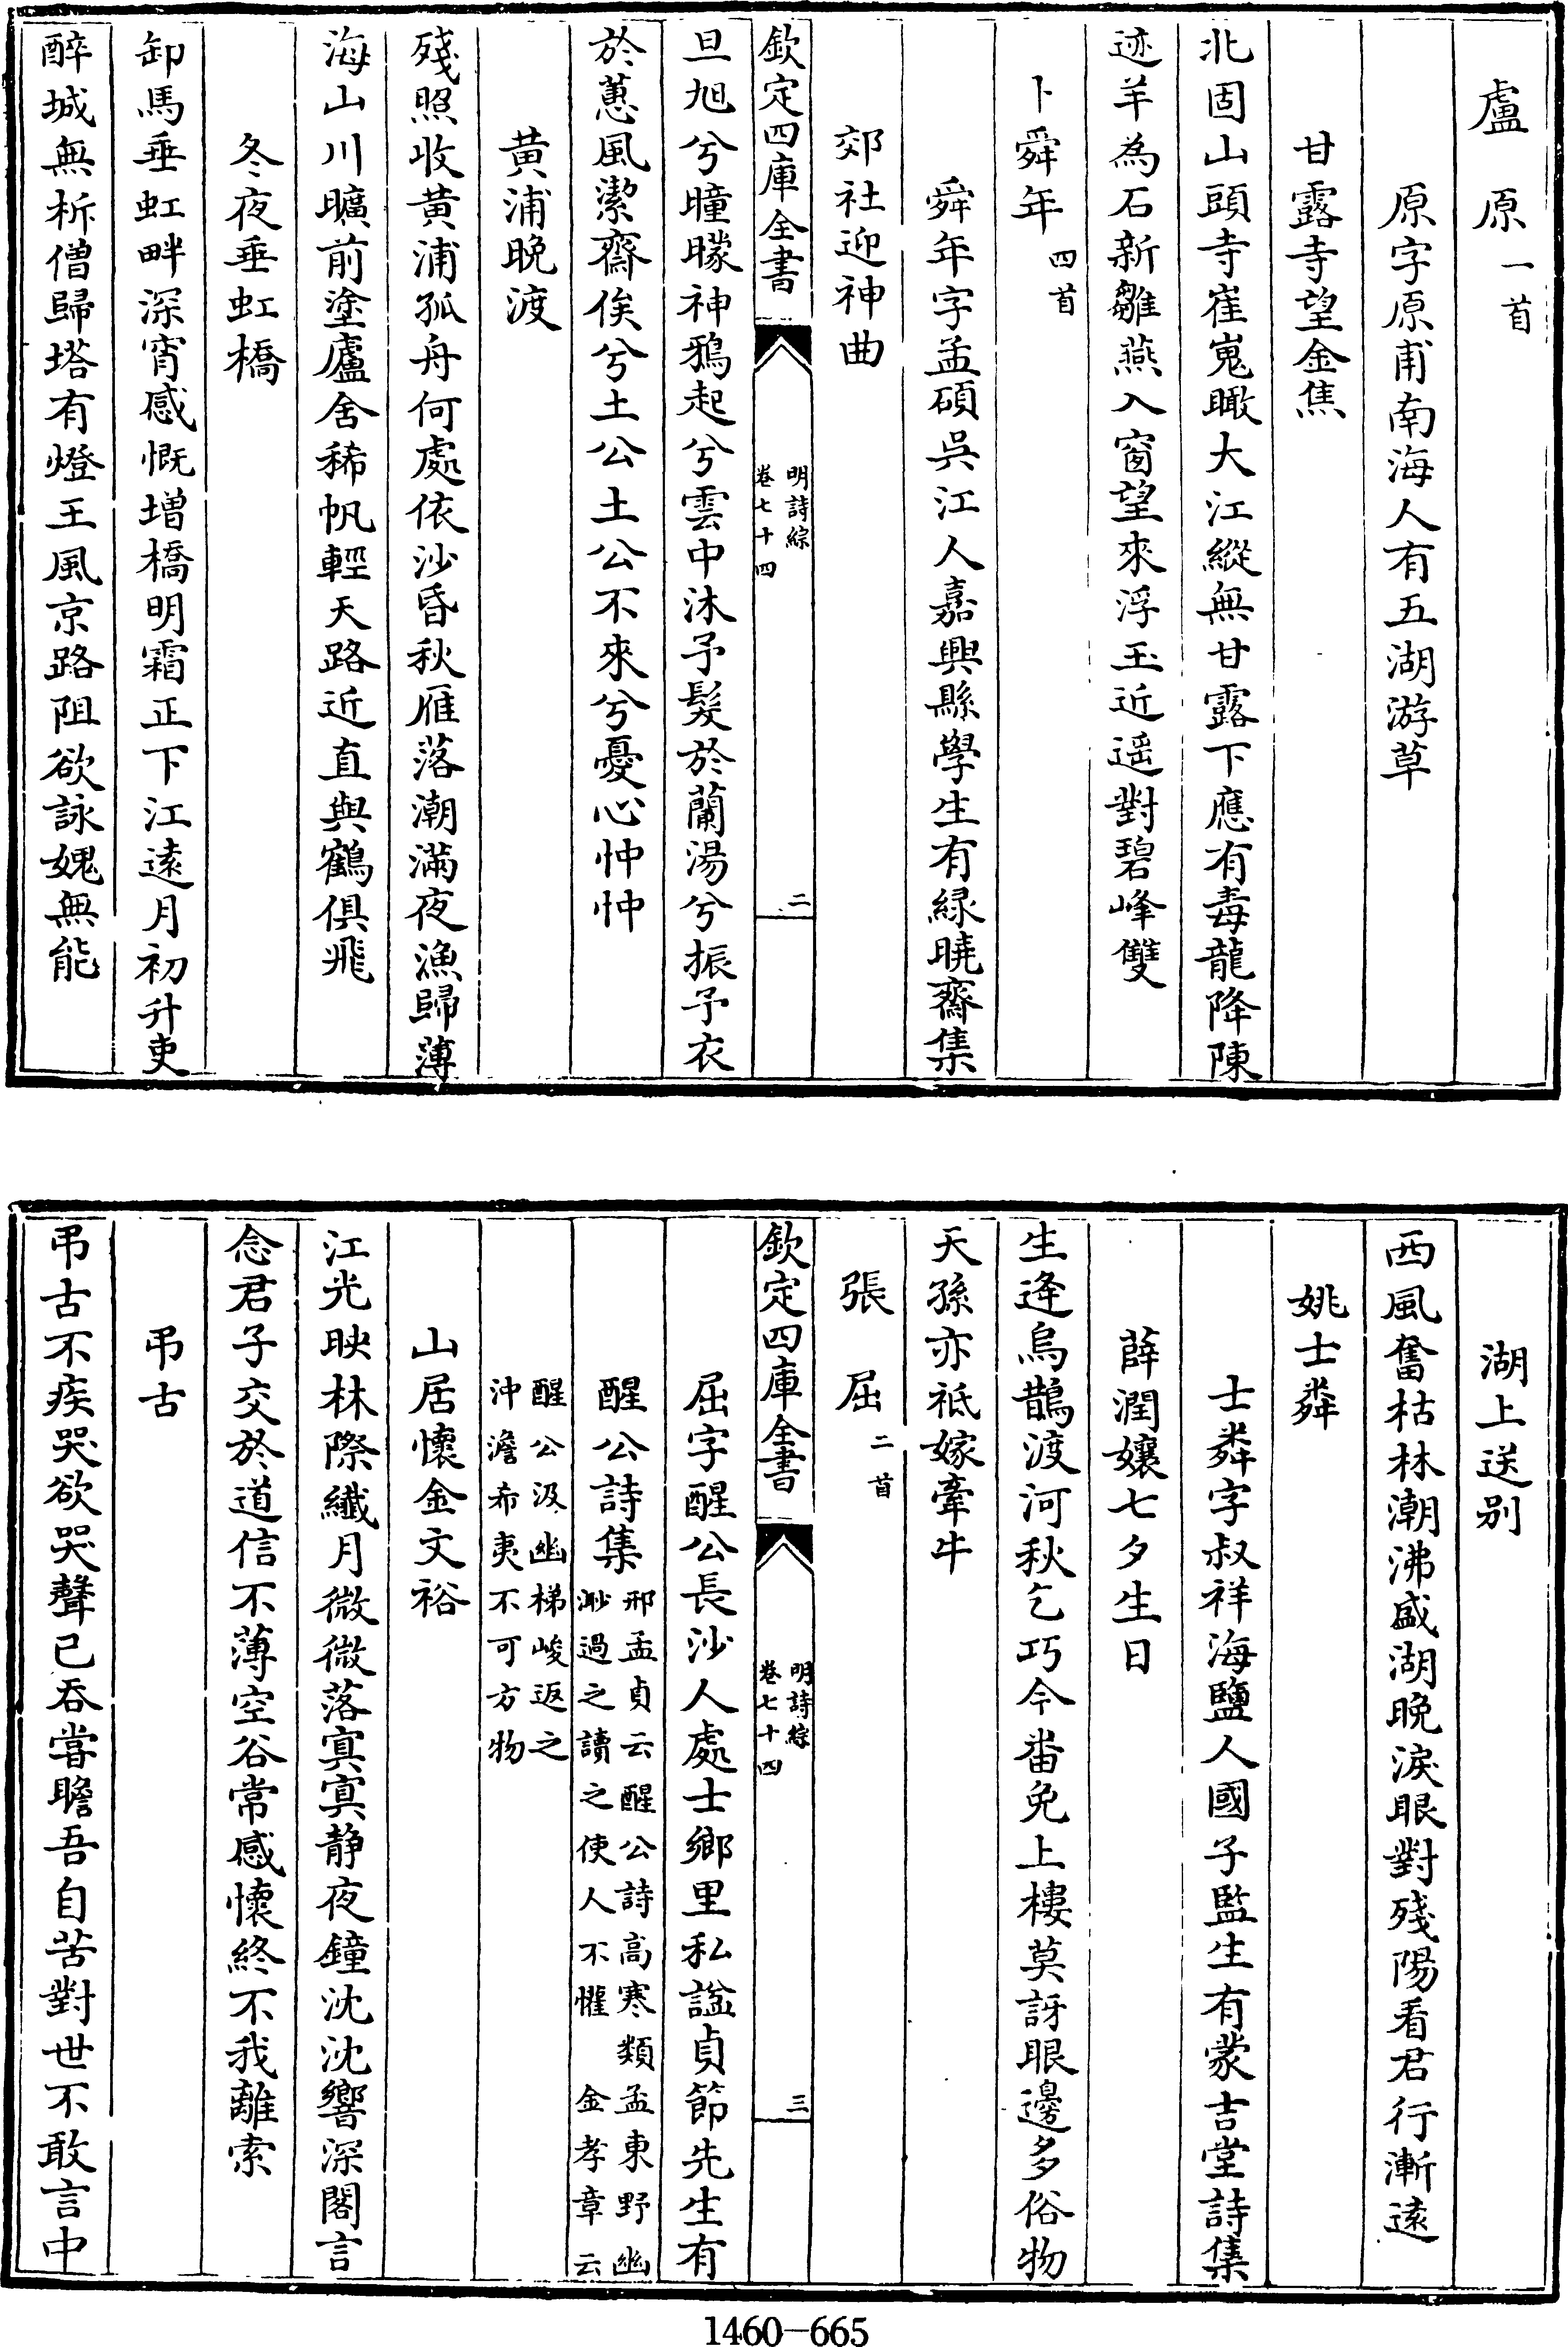 盧原一首
原字原甫南海人有五湖游草
甘露寺望金焦
北固山頭寺崔嵬瞰大江縱無甘露下應有毒龍降陳
迹羊為石新雛燕入窗望來浮玉近遥對碧峰雙
卜舜年四首
舜年字孟碩吳江人嘉興縣學生有緑曉齋集
郊社迎神曲
欽定四庫全書
明詩綜
卷七十四
二
旦旭兮曈曚神鴉起兮雲中沐予髮於蘭湯兮振予衣
於蕙風潔齋俟兮土公土公不來兮憂心忡忡
黄浦晚渡
殘照收黄浦孤舟何處依沙昏秋雁落潮滿夜漁歸薄
海山川曠前塗廬舍稀帆輕天路近直與鶴俱飛
冬夜垂虹橋
卸馬垂虹畔深宵感慨增橋明霜正下江遠月初升吏
醉城無柝僧歸塔有燈王風京路阻欲詠媿無能
湖上送别
西風奮枯林潮沸盛湖晚淚眼對殘陽看君行漸遠
姚士粦
士粦字叔祥海鹽人國子監生有蒙吉堂詩集
薛潤孃七夕生日
生逢烏鵲渡河秋乞巧今畨免上樓莫訝眼邊多俗物
天孫亦祇嫁牽牛
張屈二首
欽定四庫全書
明詩綜
卷七十四
三
屈字醒公長沙人處士鄉里私諡貞節先生有
醒公詩集邢孟貞云醒公詩高寒類孟東野幽
渺過之讀之使人不懼金孝章云
醒公汲幽梯峻返之
沖澹希夷不可方物
山居懷金文裕
江光映林際纎月微微落寞寞静夜鐘沈沈響深閣言
念君子交於道信不薄空谷常感懷終不我離索
弔古
弔古不疾哭欲哭聲已吞嘗瞻吾自苦對世不敢言中
1460-665